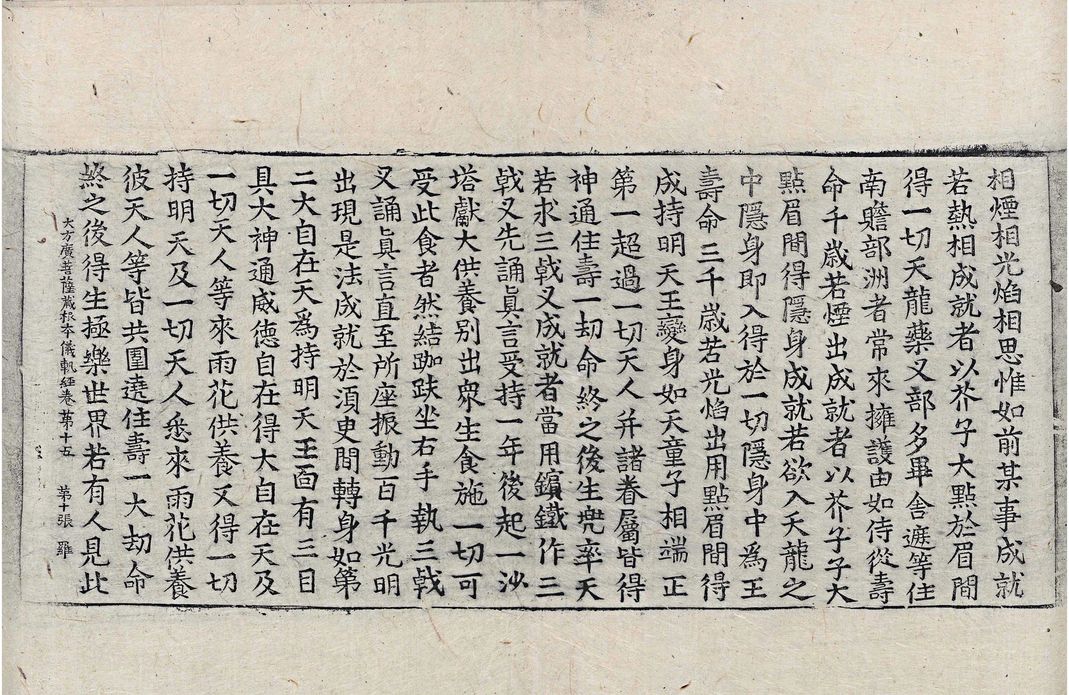 相煙相光焰相思惟如前某事成就
若熱相成就者以芥子大點於眉間
得一切天龍藥叉部多畢舍遮等住
南贍部洲者常來擁護由如侍從壽
命千歲若煙出成就者以芥子子大
點眉間得隱身成就若欲入天龍之
中隱身即入得於一切隱身中為王
壽命三千歲若光焰出用點眉間得
成持明天王變身如天童子相端正
第一超過一切天人并諸眷屬皆得
神通住壽一劫命終之後生兜率天
若求三戟叉成就者當用鑌鐵作三
戟叉先誦眞言受持一年後起一沙
塔獻大供養別出衆生食施一切可
受此食者然結跏趺坐右手執三戟
叉誦眞言直至所座振動百千光明
出現是法成就於須臾間轉身如第
二大自在天爲持明天王面有三目
具大神通威德自在得大自在天及
一切天人等來雨花供養又得一切
持明天及一切天人悉來雨花供養
彼天人等皆共圍遶住壽一大劫命
終之後得生極樂世界若有人見此
大方廣菩薩藏根本儀軌經卷第十五 第十張 羅